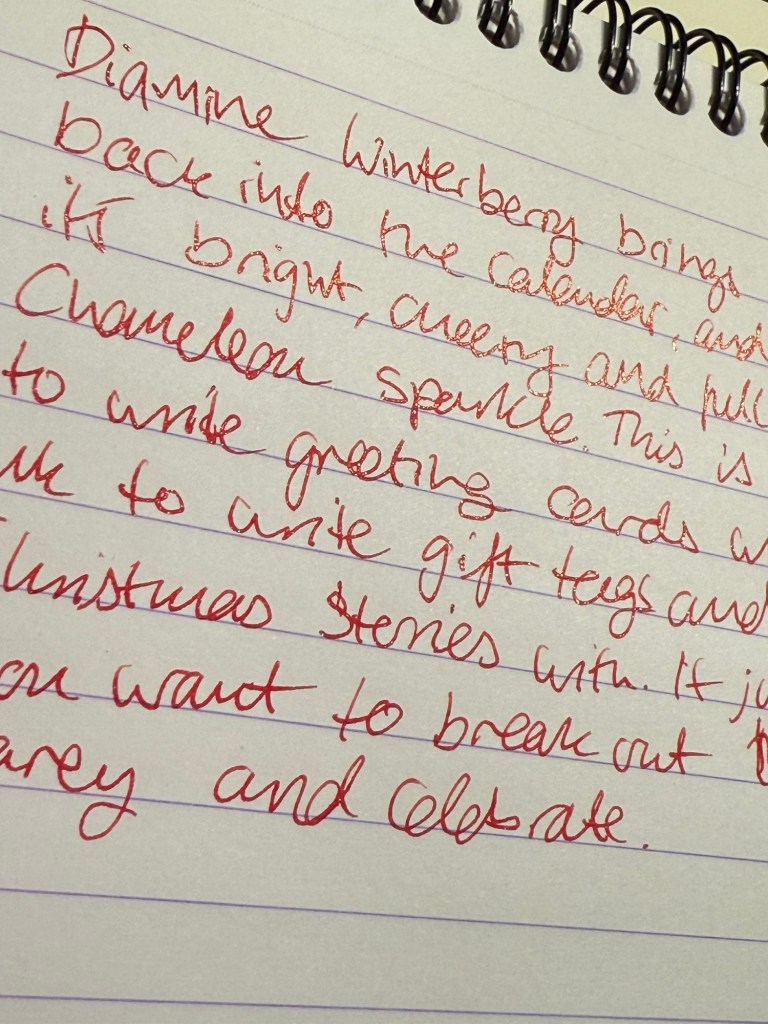 Diamine Winterberry brings
back into the calendar, and
it's bright, cheery and full
Chameleon sparkle. This is
to write greeting cards w
to write gift tags and
Christmas stories with. It ju
ou want to break out
arey and celebrate.